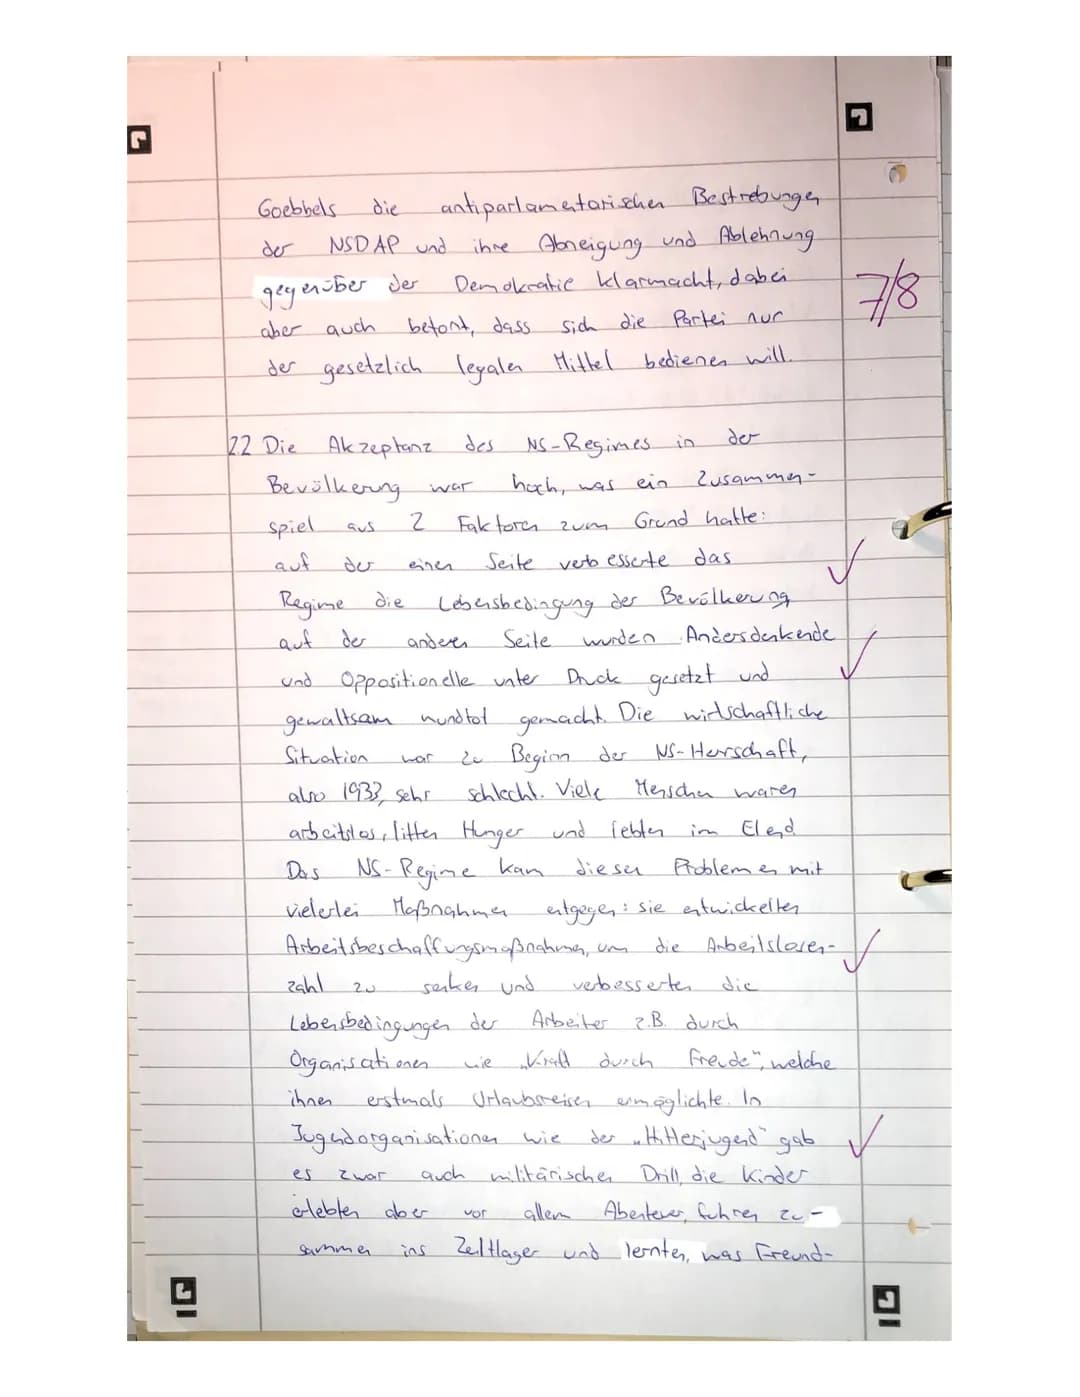 Goebbels die antiparlamentarischen Bestrebungen
der NSDAP und ihre Abneigung und Ablehnung
gegenüber der Demokratie klarmacht, dabei
7/8
aber auch betont, dass sich die Partei nur
der gesetzlich legalen Mittel bedienen will.
2.2 Die Akzeptanz des NS-Regimes in der
Bevölkerung war hoch, was ein Zusammen-
spiel aus 2 Faktoren zum Grund hatte:
auf der einen Seite verbesserte das
Regime die Lebensbedingung der Bevölkerung
auf der anderen Seite wurden Andersdenkende
und Oppositionelle unter Druck gesetzt und
gewaltsam mundtot gemacht. Die wirtschaftliche
Situation war zu Beginn der NS-Herrschaft,
also 1933, sehr schlecht. Viele Menschen waren
arbeitslos, litten Hunger und lebten im Elend
Das NS-Regime kam diesen Problemen mit
vielerlei Maßnahmen entgegen: sie entwickelten
Arbeitsbeschaffungsmaßnahmen, um die Arbeitslosen-
zahl zu senken und verbesserten die
Lebensbedingungen der Arbeiter z.B. durch
Organisationen wie „Kraft durch Freude", welche
ihnen erstmals Urlaubsreisen ermöglichte. In
Jugendorganisationen wie der „Hitlerjugend" gab
es zwar auch militärischen Drill, die Kinder
erlebten aber vor allem Abenteuer, fuhren zu-
sammen ins Zeltlager und lernten, was Freund-